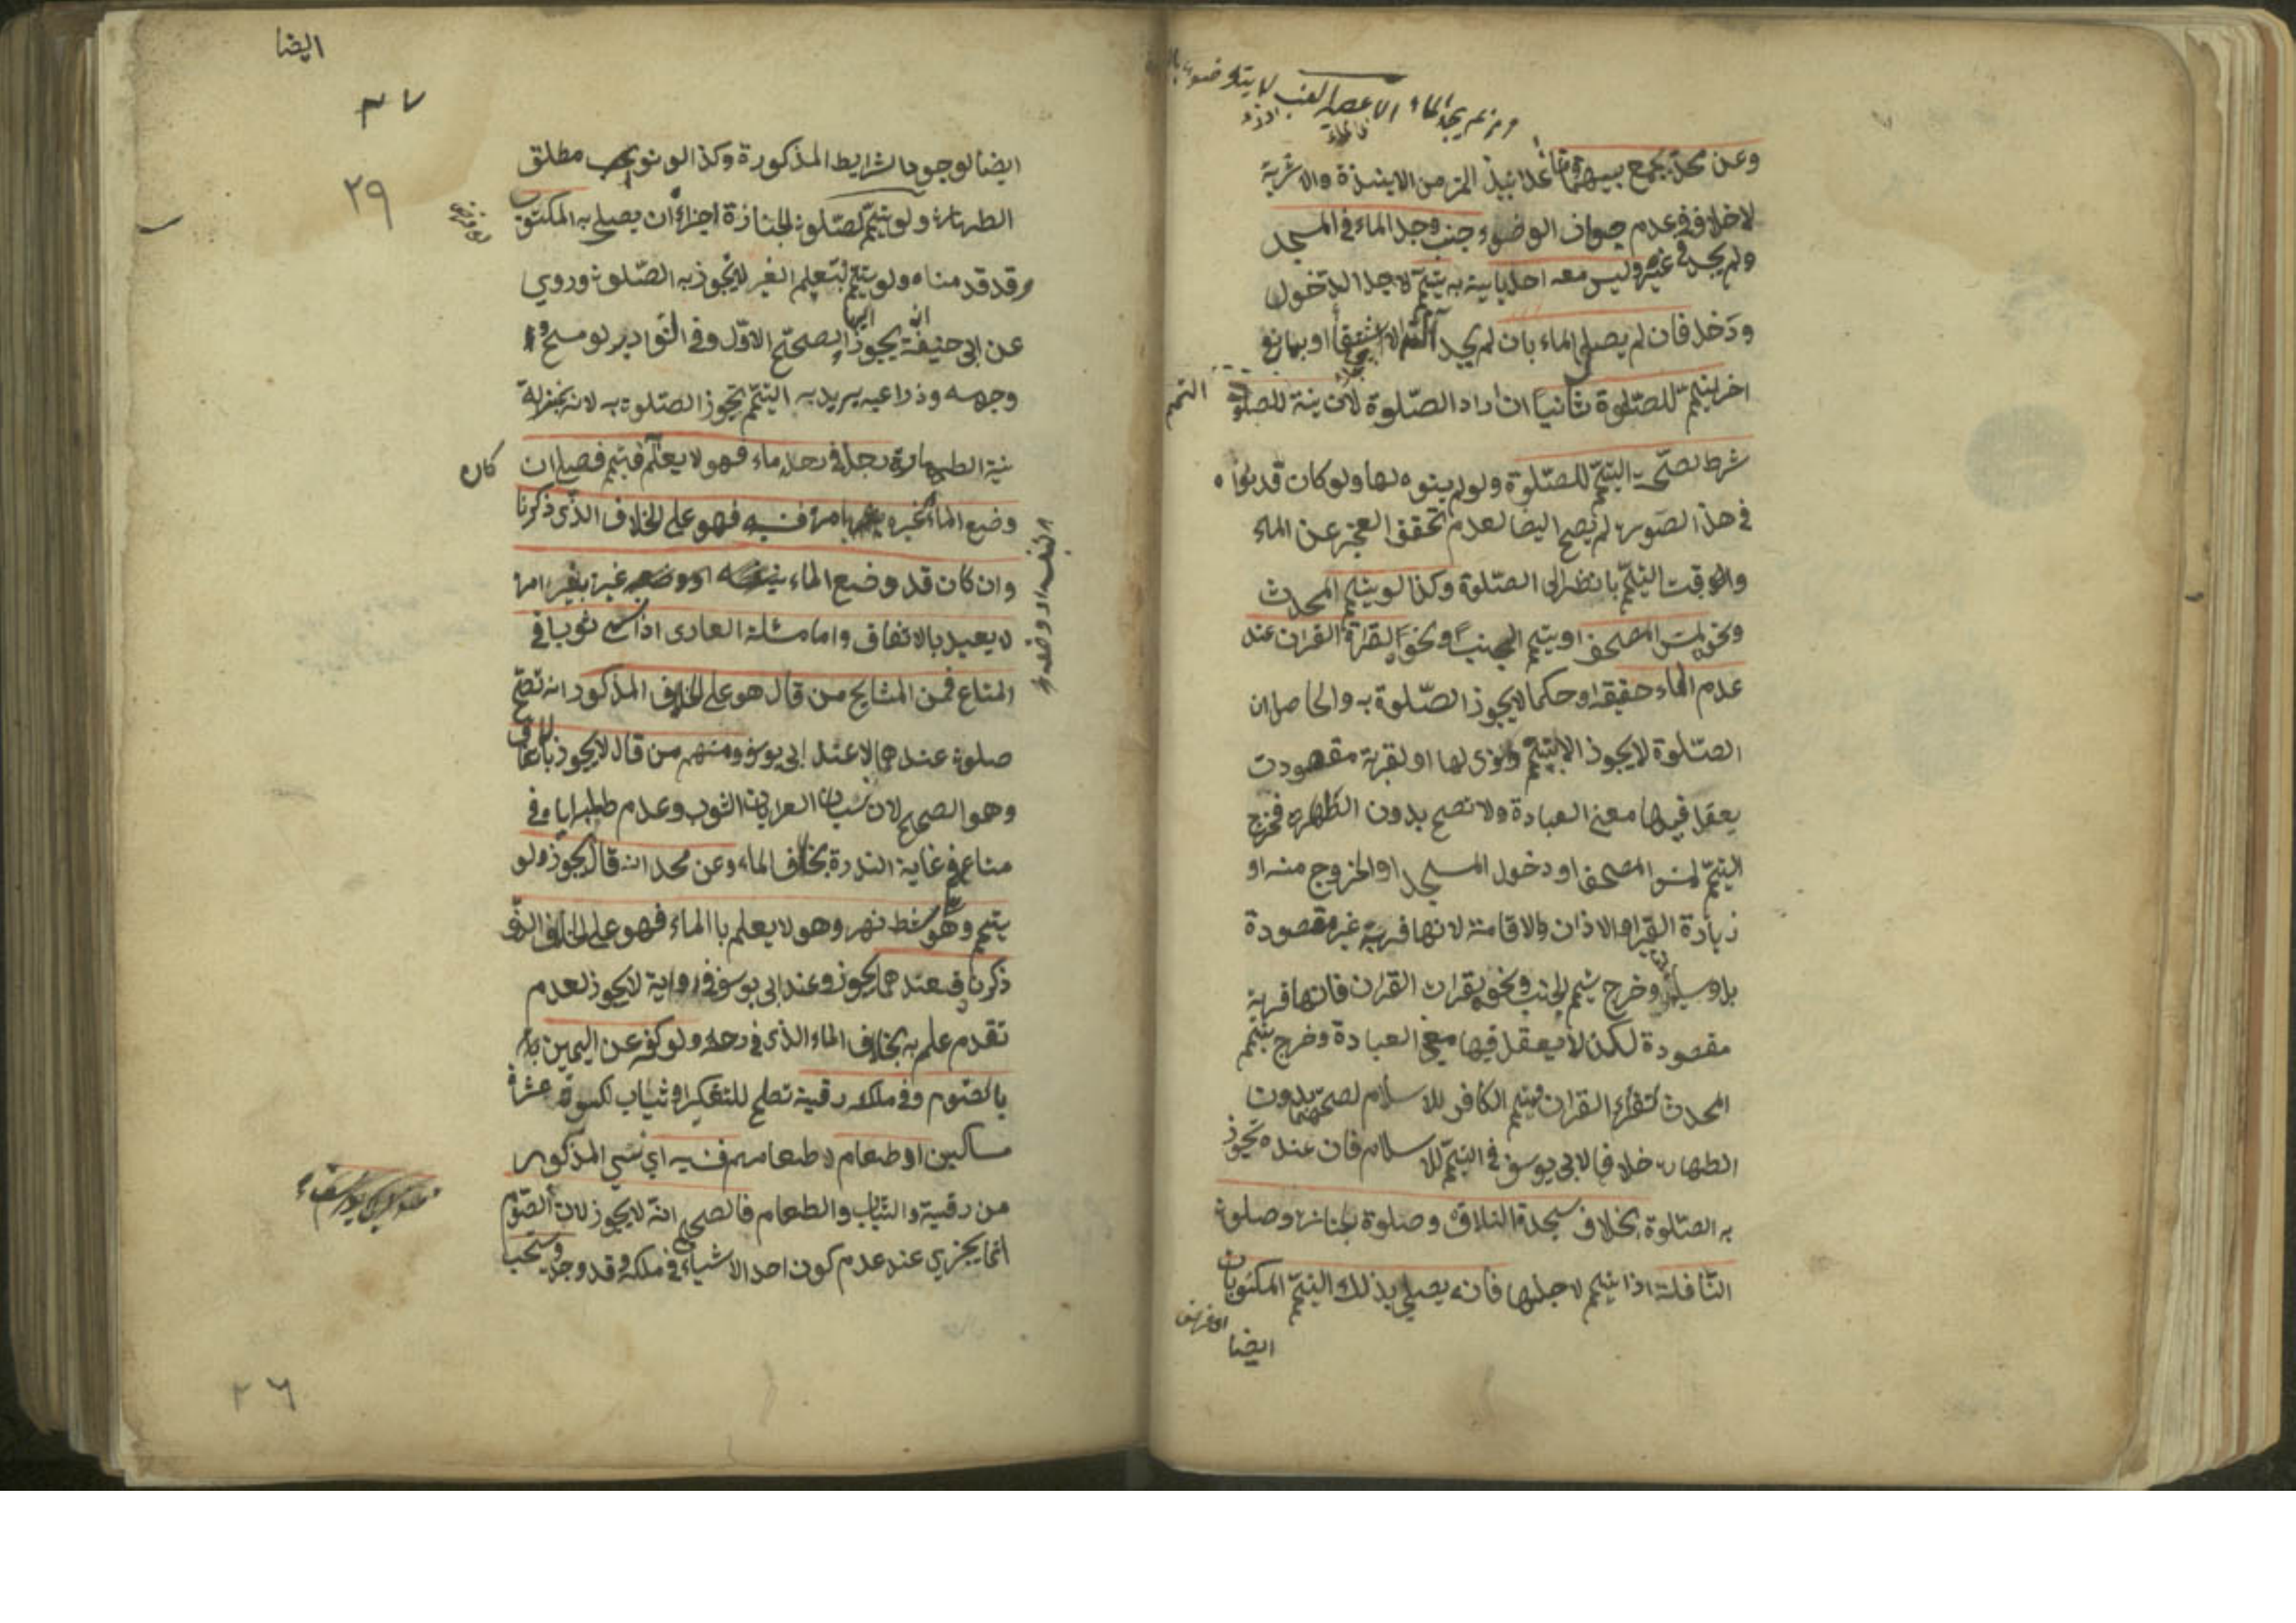 وعن محمد يجمع بينهما وما عدا نبيذ التمر من الانبذة والاشربة
لا خلاف في عدم جواز الوضوء جنب وجد الماء في المسجد
ولم يجد في غيره وليس معه احد يأتيه به يتيمم لاجل الدخول
ودخل فان لم يصل الى الماء بان لم يجد آلة الاستقاء او بمانع
اخر يتيمم للصلوة ثانيا ان اراد الصلوة لان نية الصلوة
شرط لصحة التيمم للصلوة ولو لم ينوه لها ولو كان قد نواه
في هذا الصورة لم يصح ايضا لعدم تحقق العجز عن الماء
والوقت التيمم بالنظر الى الصلوة وكذا لو يتيمم المحدث
ونحو لمس المصحف او يتيمم الجنب ونحوه لقرائة القران عند
عدم الماء حقيقة او حكما لا يجوز الصلوة به والحاصل ان
الصلوة لا يجوز الا بتيمم ونوى لها او لقربة مقصودت
يعقل فيها معنى العبادة ولا تصح بدون الطهارة فخرج
التيمم لمس المصحف او دخول المسجد او الخروج منه او
زيارة القبر او الاذان والاقامة لانها قربة غير مقصودة
بل وسيلة وخرج تيمم الجنب ونحوه لقرات القران فانها قربة
مقصودة لكن لا يعقل فيها معنى العبادة وخرج بتيمم
المحدث لقراءة القران وتيمم الكافر للاسلام لصحتهما بدون
الطهارة خلافا لابي يوسف في التيمم للاسلام فان عنده يجوز
به الصلوة بخلاف سجدة التلاوة وصلوة الجنازة وصلوة
النافلة اذا تيمم لاجلها فانه يصلي بذلك التيمم المكتوبات
ايضا
ايضا
٣٧
٢٩
ايضا لوجود الشرايط المذكورة وكذا لو نوى مطلق
الطهارة ولو تيمم لصلوة الجنازة اجزاه ان يصلي به المكتوبة
وقد قدمناه ولو تيمم لتعليم الغير لا يجوز به الصلوة وروي
عن ابي حنيفة انه يجوز الصحيح الاول وفي النوادر لو مسح
وجهه وذراعيه يريد به التيمم يجوز الصلوة به لانه بمنزلة
نية الطهارة رجل في رحله ماء فهو لا يعلم فتيمم فصلى ان
كان
وضع الماء غيره بامره فنسيه فهو على الخلاف الذي ذكرنا
وان كان قد وضع الماء بنفسه او وضعه غيره بغير امره
لا يعيد بالاتفاق واما مسئلة العاري اذا نسي ثوبا في
المتاع فمن المشايخ من قال هو على الخلاف المذكور انه تصح
صلوة عندهما لا عند ابي يوسف ومنهم من قال لا يجوز بالاتفاق
وهو الصحيح لان نسيان العريان الثوب وعدم طلبه اياه في
متاعه في غاية الندرة بخلاف الماء وعن محمد انه قال يجوز ولو
يتيمم وهو شط نهر وهو لا يعلم با الماء فهو على الخلاف الذي
ذكرنا فعندهما يجوز وعند ابي يوسف في رواية لا يجوز لعدم
تقدم علمه به بخلاف الماء الذي في رحله ولو كفر عن اليمين
بالصوم وفي ملكه رقبة تصلح للتكفير او ثياب لكسوة عشرة
مساكين او طعام لاطعامهم فنسيه اي نسي المذكور
من رقبة والثياب والطعام فالصحيح انه لا يجوز لان الصوم
انما يجزي عند عدم كون احد الاشياء في ملكه وقد وجد ويستحب
٢٦